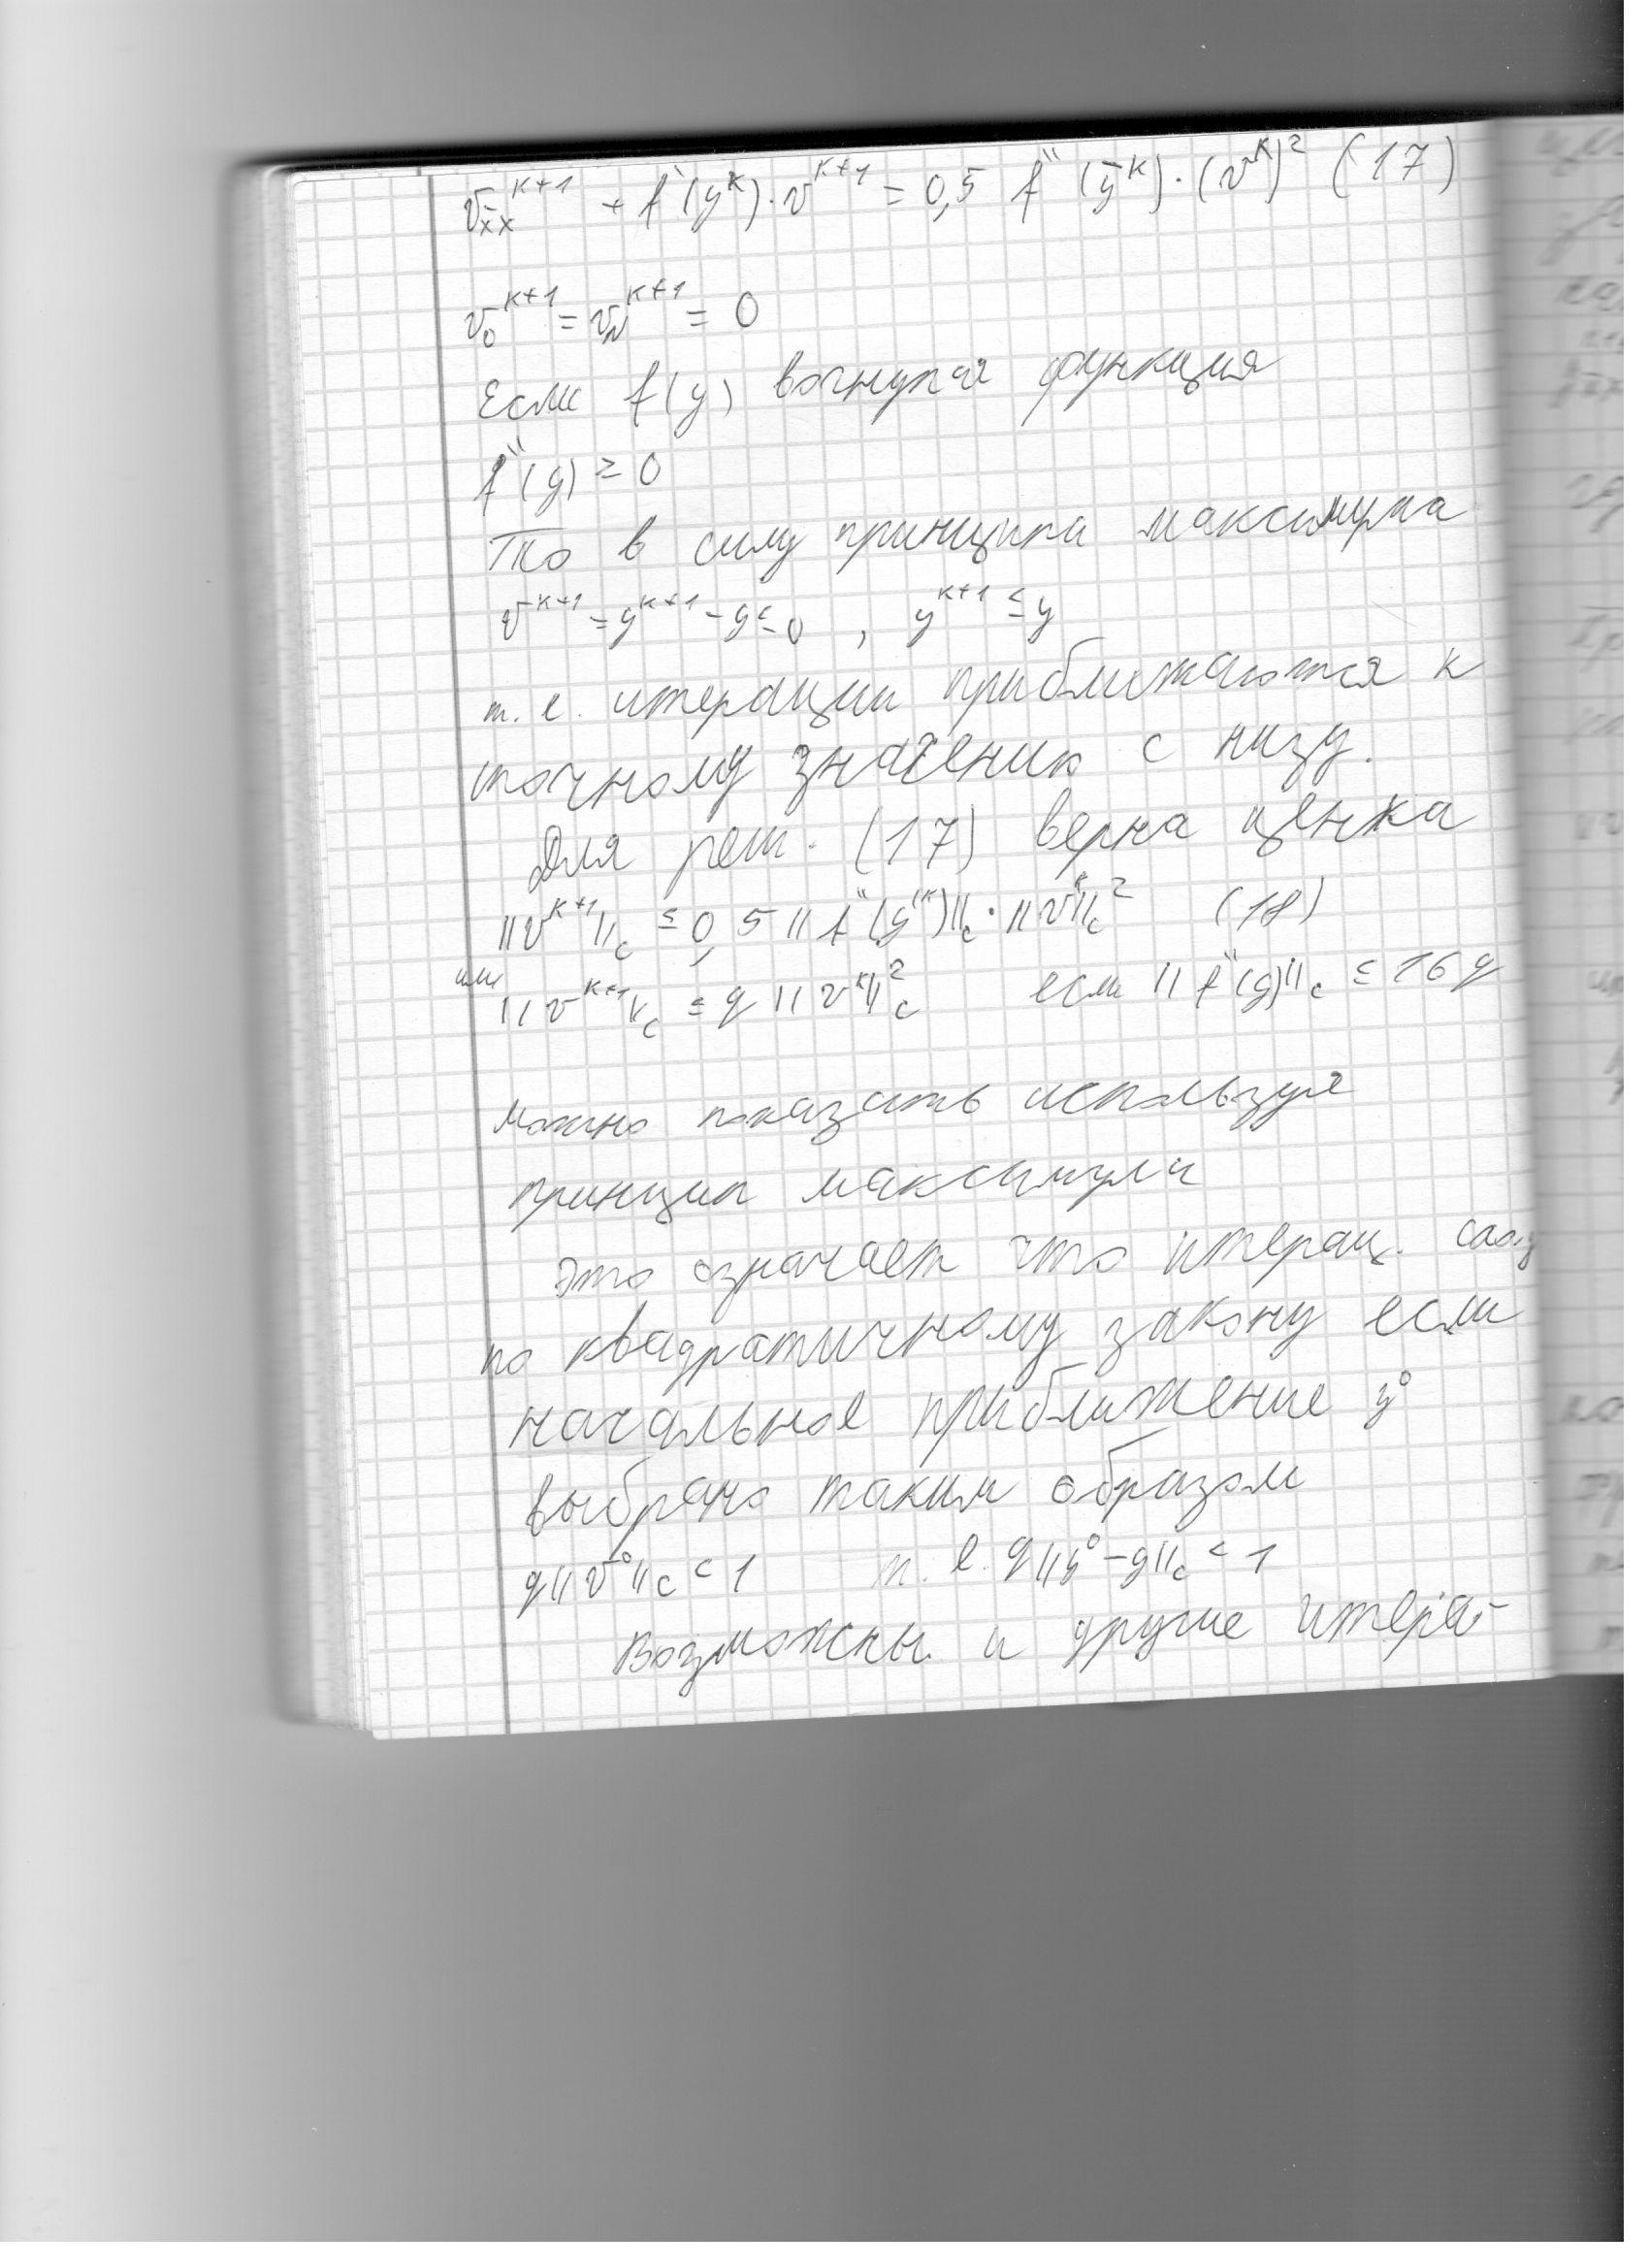 v_{x̄x}^{к+1} + f'(y^к)·v^{к+1} = 0,5 f''(ȳ^к)·(v^к)² (17)
v_0^{к+1} = v_N^{к+1} = 0
Если f(y) вогнутая функция
f''(y) ≥ 0
То в силу принципа максимума
v^{к+1} = y^{к+1} - y ≤ 0 , y^{к+1} ≤ y
т. е. итерации приближаются к
точному значению с низу.
Для реш. (17) верна оценка
||v^{к+1}||_c ≤ 0,5 || f''(ȳ^к)||_c · ||v^к||_c² (18)
или ||v^{к+1}||_c ≤ q ||v^к||_c² если || f''(y)||_c ≤ 16q
можно показать используя
принцип максимума
Это означает что итерац. сход
по квадратичному закону если
начальное приближение y⁰
выбрано таким образом
q||v⁰||_c < 1 т. е. q||y⁰-y||_c < 1
Возможны и другие итера-